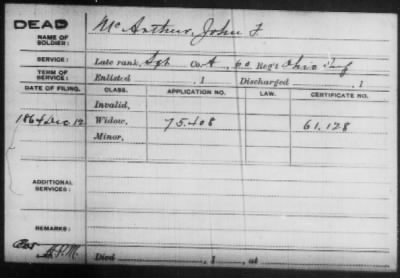 DEAD
NAME OF SOLDIER: McArthur, John F.
SERVICE: Late rank, Sgt Co. A, 60 Reg't Ohio Inf
TERM OF SERVICE: Enlisted , 1 Discharged , 1
DATE OF FILING. CLASS. APPLICATION NO. LAW. CERTIFICATE NO.
Invalid,
1864 Dec. 12 Widow, 75.408 61.128
Minor,
ADDITIONAL SERVICES:
REMARKS:
Died , 1 , at